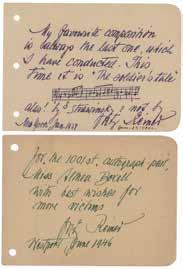 My favourite composition
is always the last one, which
I have conducted. This
time it is "The soldier's tale"
also: by Stravinsky & not by
Fritz Reiner
for the 1001st. autograph past,
Miss Althea Bovell
with best wishes for
more victims
Fritz Reiner
Westport June 1946